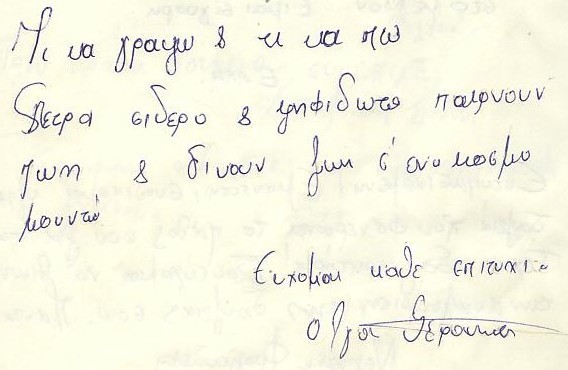 Τι να γραψω & τι να πω
Πετρα σιδερο & ψηφιδωτο παιρνουν
ζωη & δινουν ζωη σ' ενα κοσμο
μουντό
Ευχομαι καθε επιτυχια
Ολγα